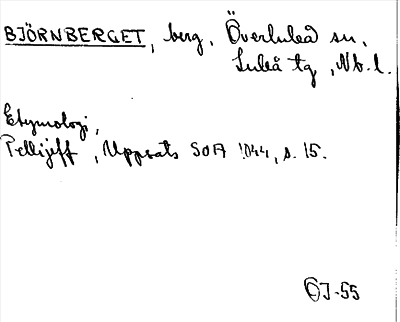 BJÖRNBERGET, berg, Överluleå sn,
Luleå tg, Nb. l.
Etymologi,
Pellijeff, Uppsats SOFA 1044, s. 15.
ÖJ-55